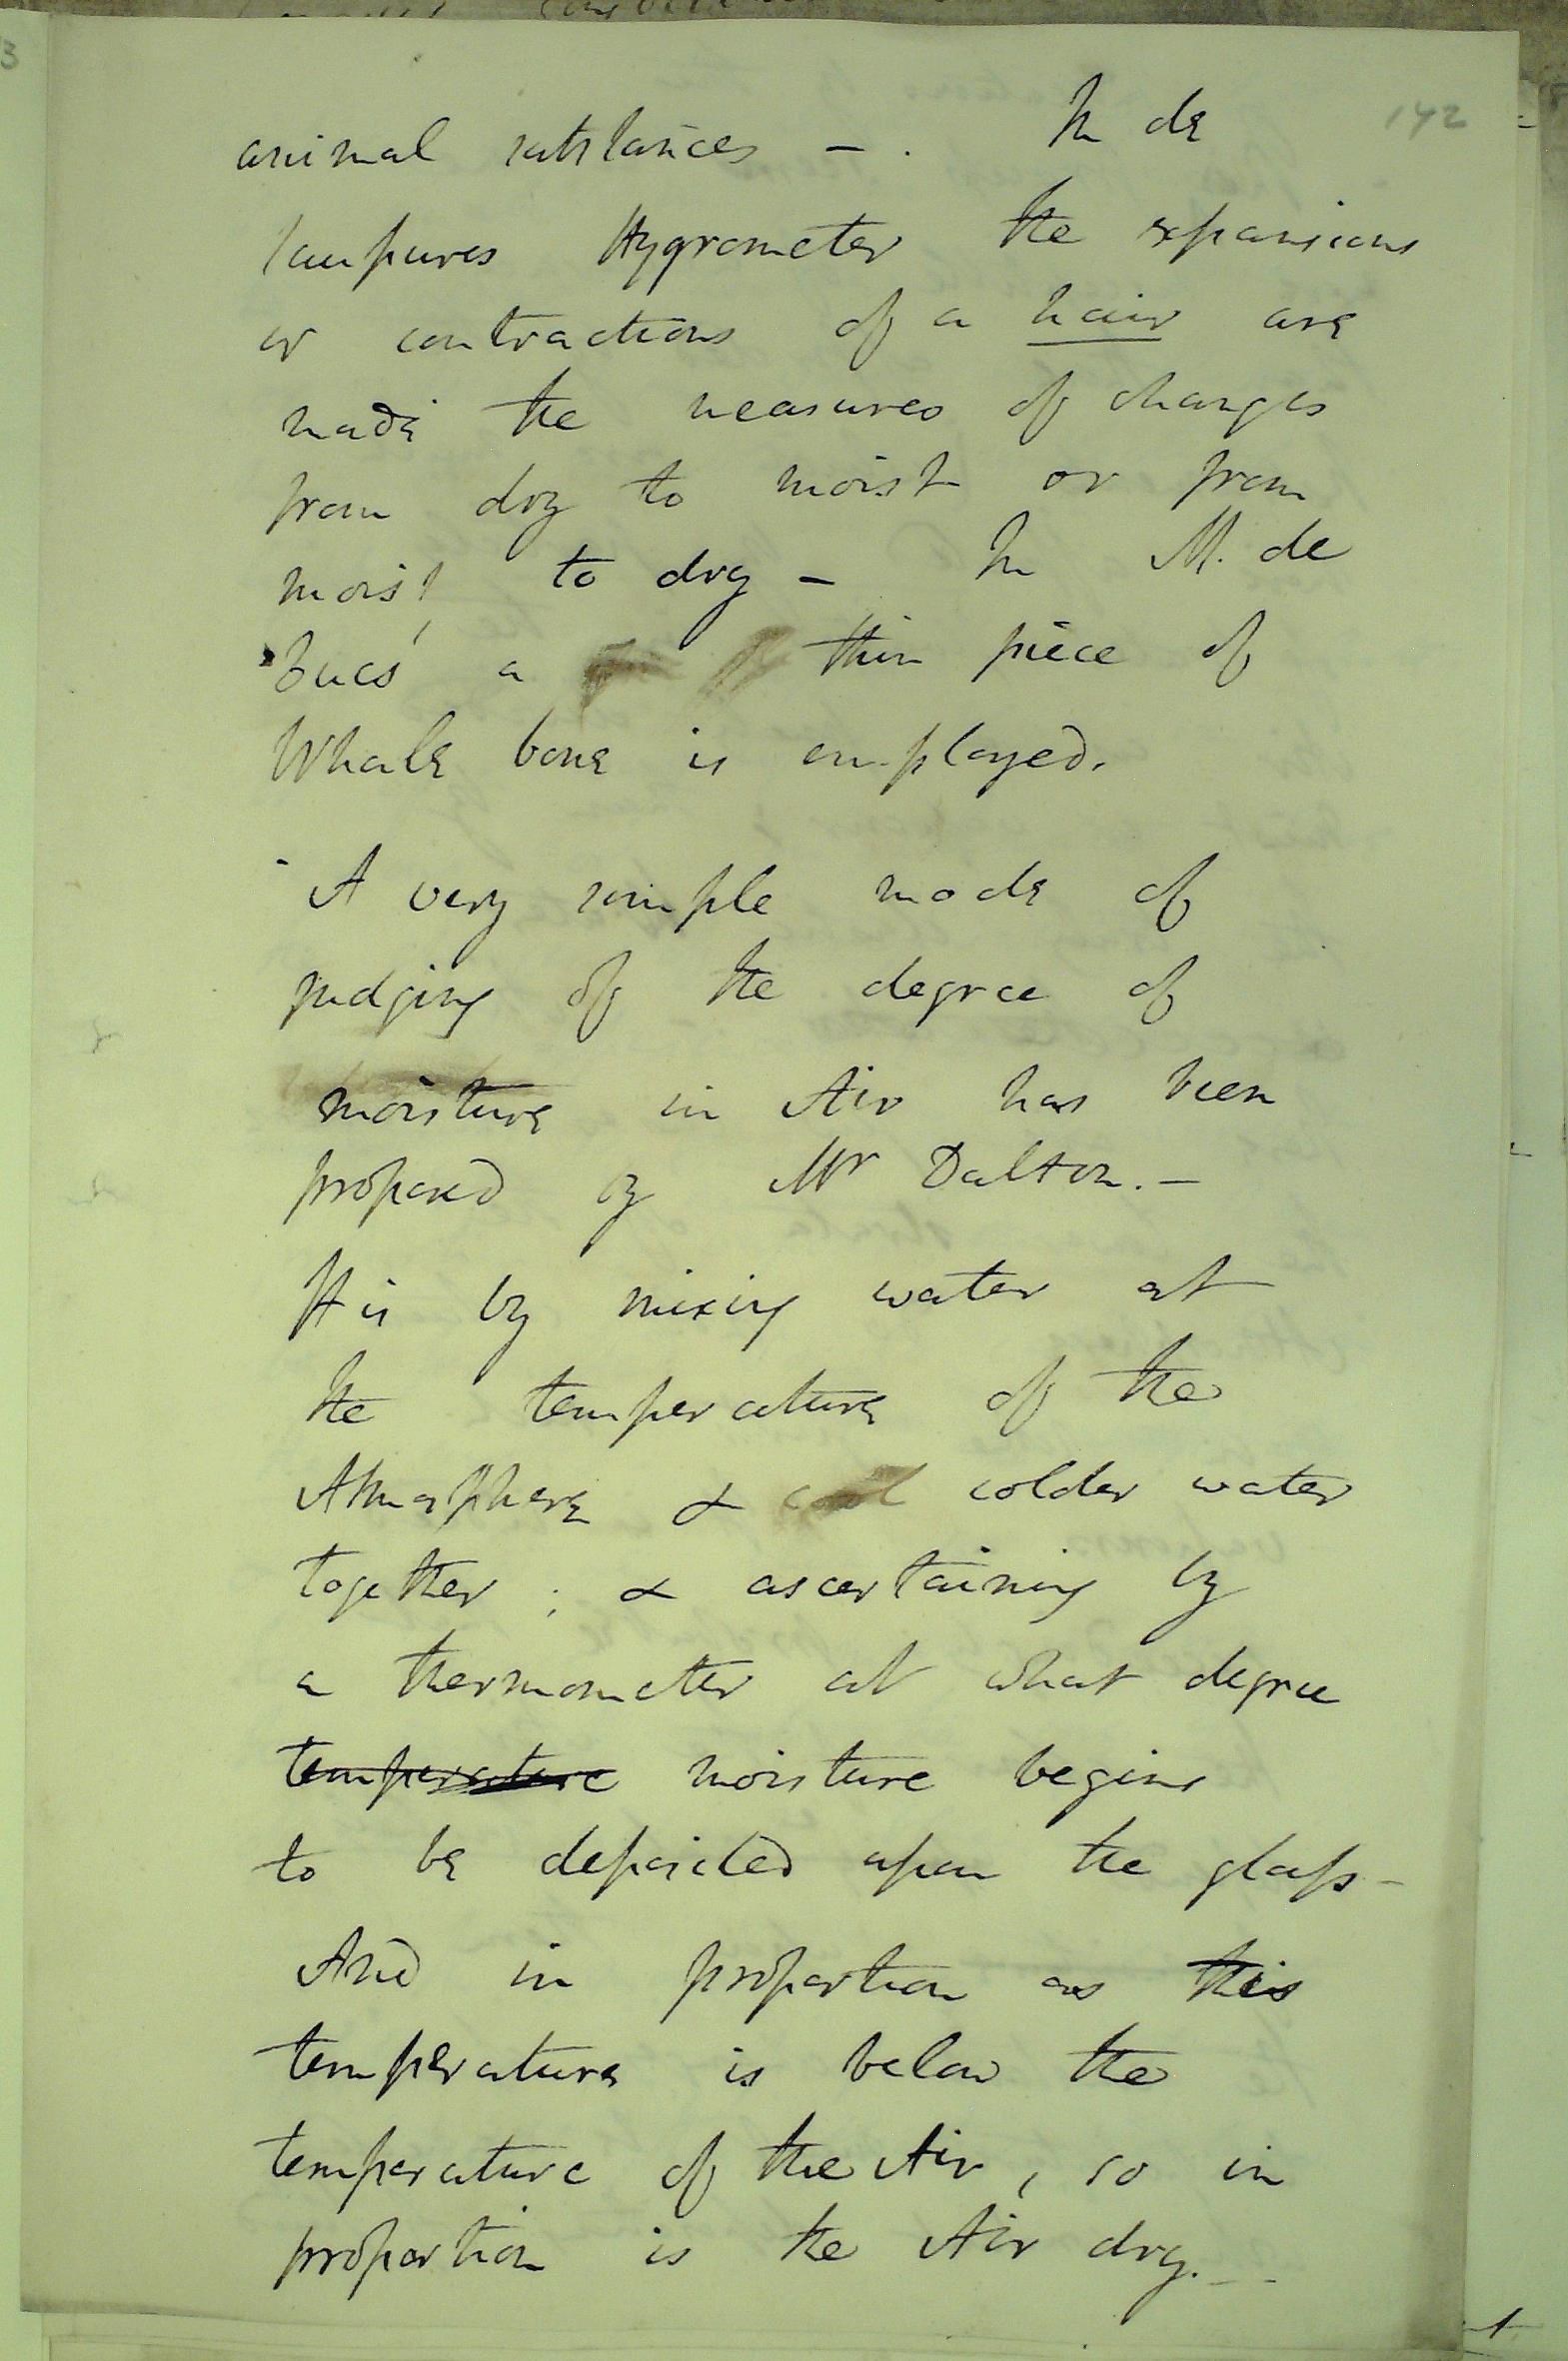 142
animal substances - . In de
Saussures Hygrometer the expansions
or contractions of a hair are
made the measures of changes
from dry to moist or from
moist to dry - In M. de
Lucs' a thin piece of
Whale bone is employed.
A very simple mode of
judging of the degree of
moisture in Air has been
proposed by Mr Dalton. -
It is by mixing water at
the temperature of the
Atmosphere & cool colder water
together ; & ascertaining by
a thermometer at what degree
temperature moisture begins
to be deposited upon the glass -
And in proportion as this
temperature is below the
temperature of the Air, so in
proportion is the Air dry. - -